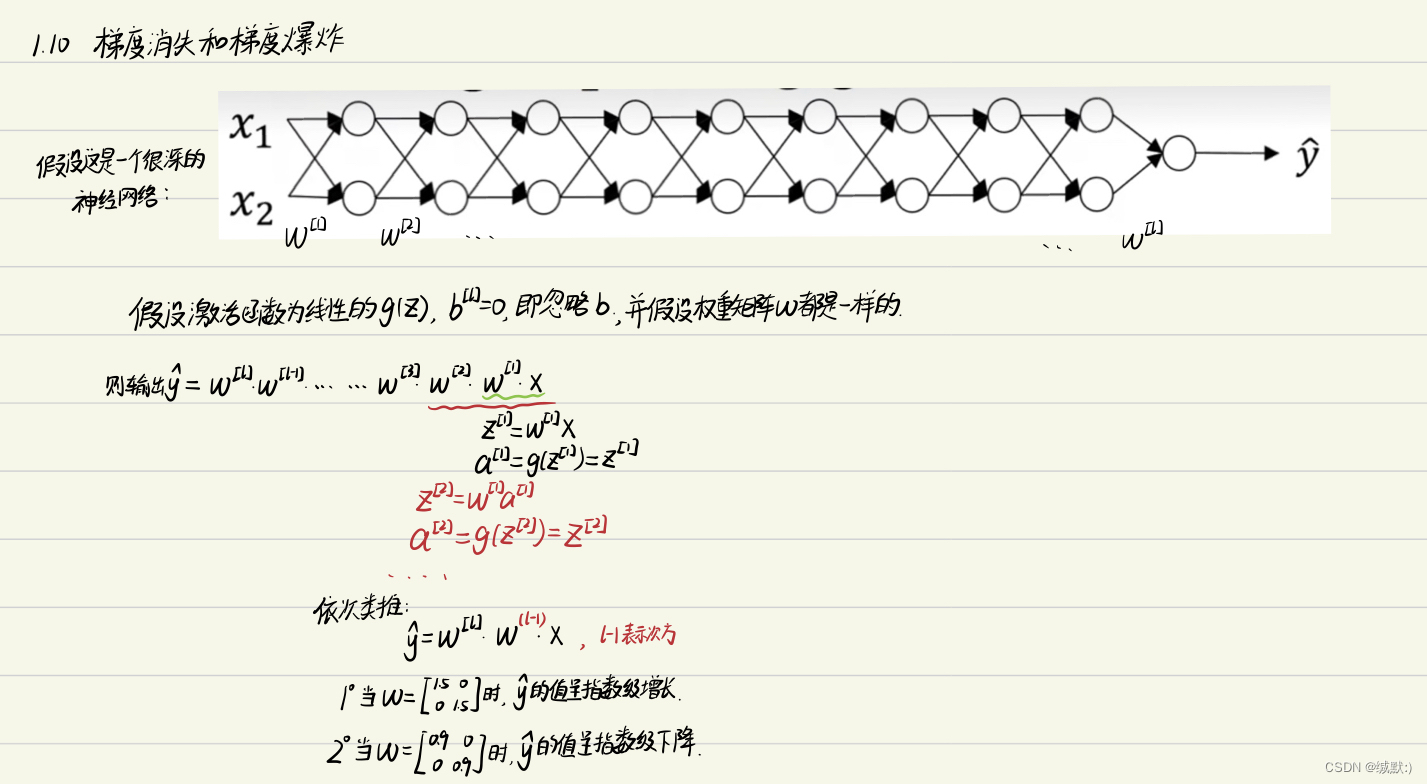 1.10 梯度消失和梯度爆炸
x₁
x₂
ŷ
假设这是一个很深的
神经网络:
W^[1] W^[2] ... ... W^[l]
假设激活函数为线性的g(z), b^[l]=0, 即忽略b, 并假设权重矩阵W都是一样的.
则输出ŷ = W^[l]·W^[l-1]·... ... W^[3]·W^[2]·W^[1]·X
z^[1]=W^[1]X
a^[1]=g(z^[1])=z^[1]
z^[2]=W^[1]a^[1]
a^[2]=g(z^[2])=z^[2]
....
依次类推:
ŷ=W^[l]·W^(l-1)·X , l-1表示次方
1° 当W=[1.5 0
0 1.5]时, ŷ的值呈指数级增长.
2° 当W=[0.9 0
0 0.9]时, ŷ的值呈指数级下降.
CSDN @缄默:)